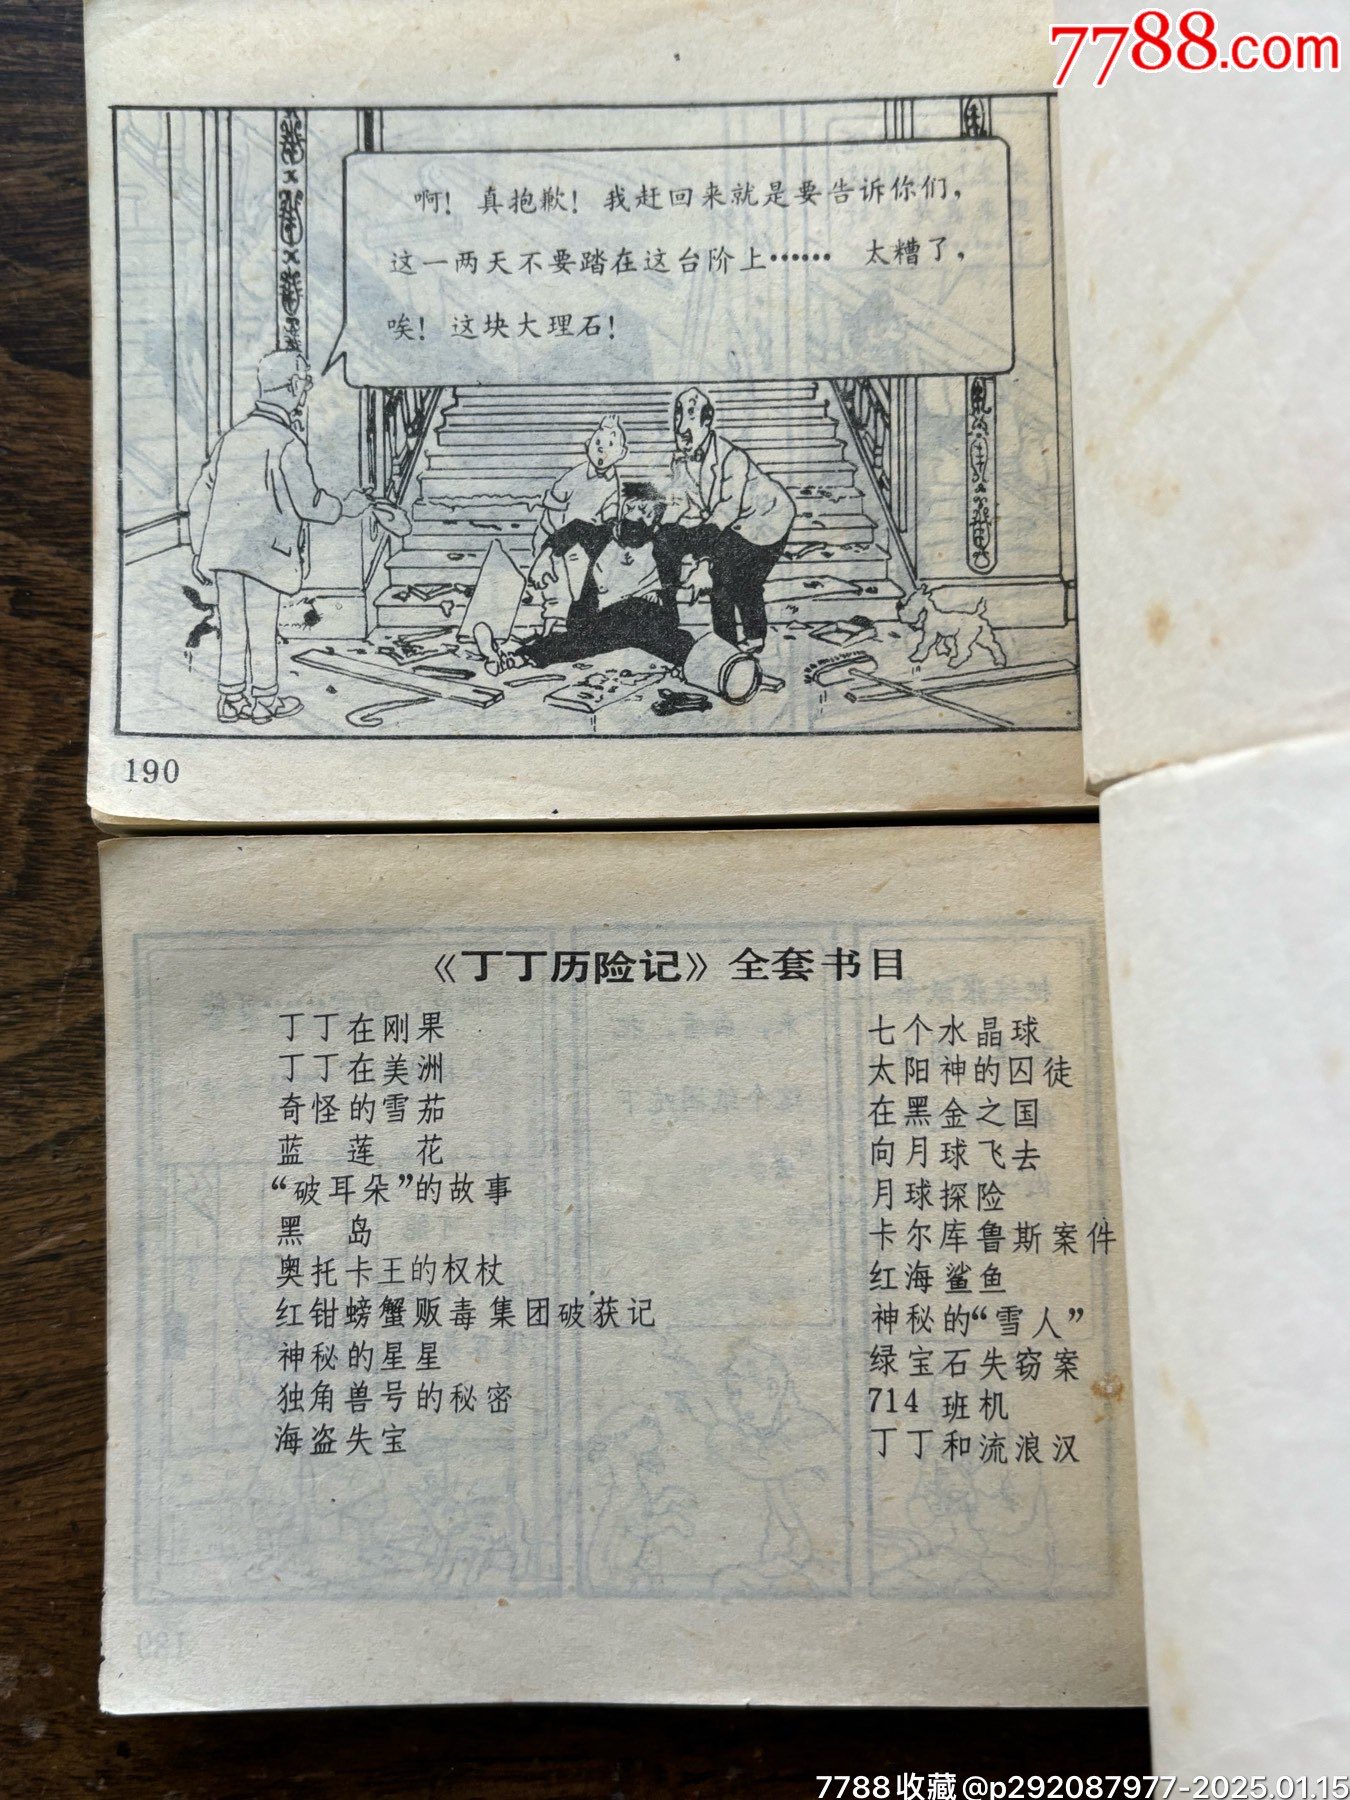 7788.com
啊！真抱歉！我赶回来就是要告诉你们，
这一两天不要踏在这台阶上……  太糟了，
唉！这块大理石！
190
《丁丁历险记》全套书目
丁丁在刚果
丁丁在美洲
奇怪的雪茄
蓝 莲 花
“破耳朵”的故事
黑 岛
奥托卡王的权杖
红钳螃蟹贩毒集团破获记
神秘的星星
独角兽号的秘密
海盗失宝
七个水晶球
太阳神的囚徒
在黑金之国
向月球飞去
月球探险
卡尔库鲁斯案件
红海鲨鱼
神秘的“雪人”
绿宝石失窃案
714 班机
丁丁和流浪汉
7788收藏@p292087977-2025.01.15